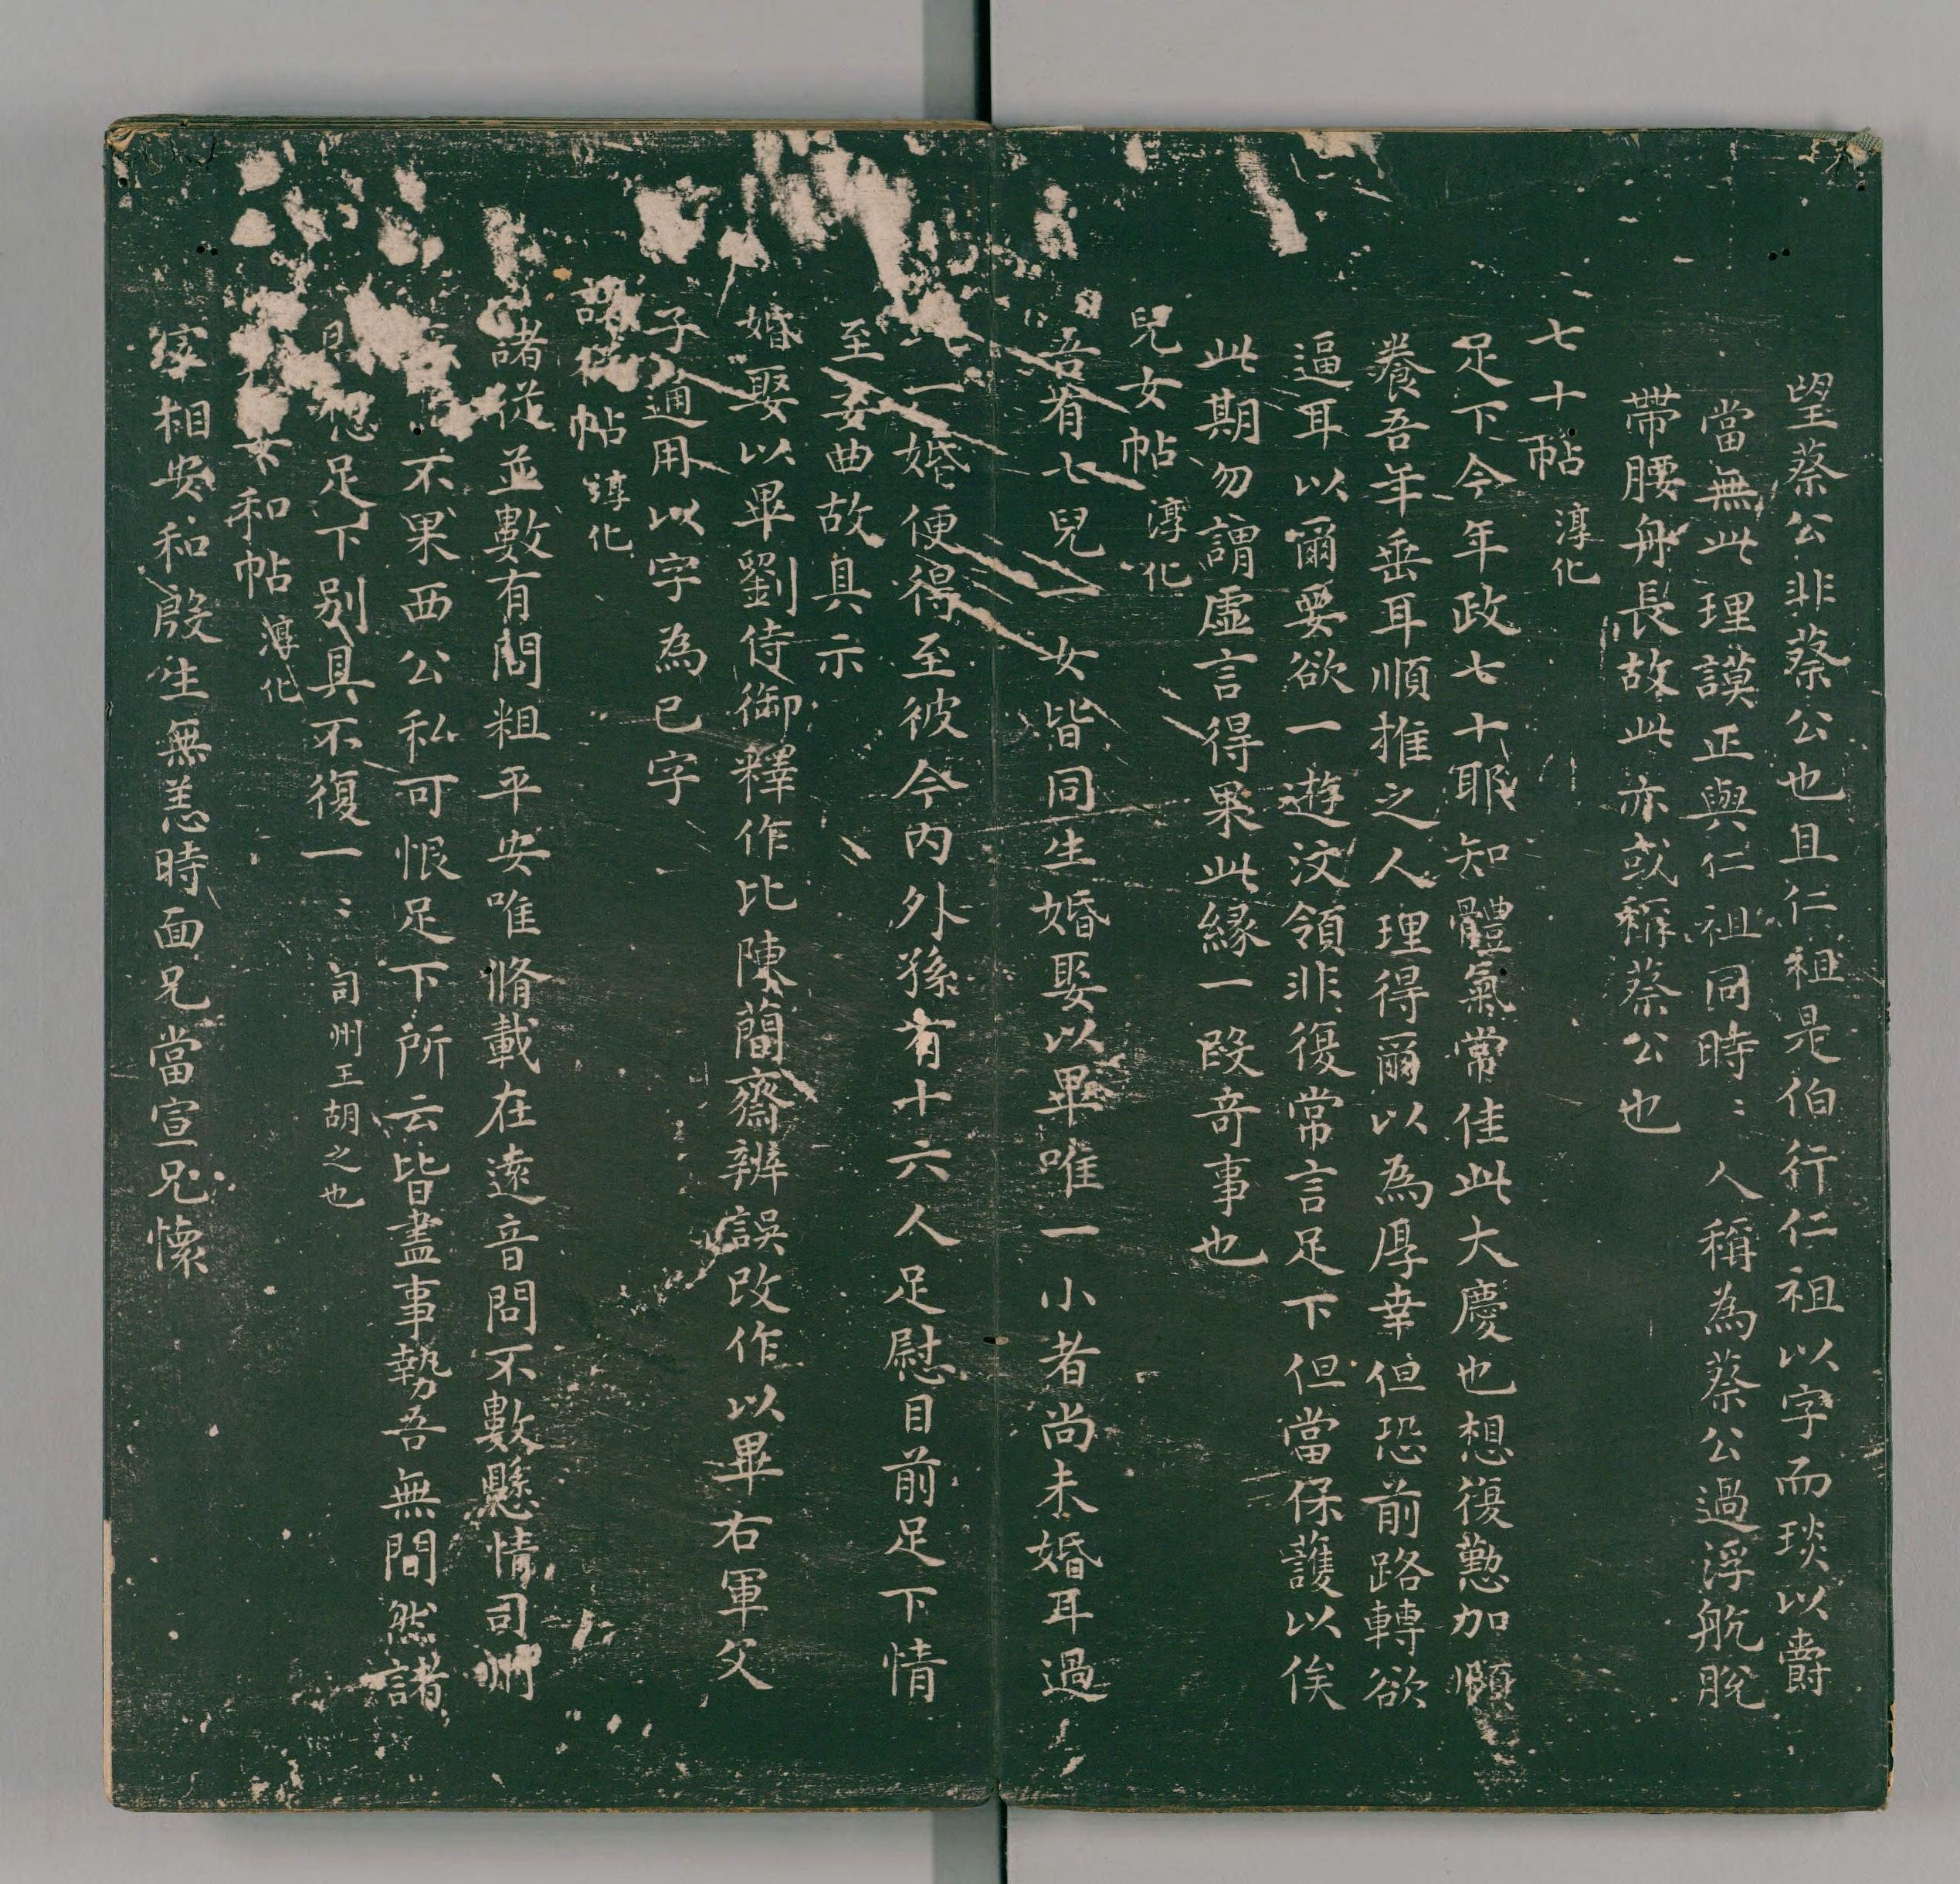 望蔡公非蔡公也且仁祖是伯行仁祖以字而琰以爵
當無此理謨正與仁祖同時〻人稱為蔡公過浮航脫
帶腰舟長故此亦或稱蔡公也
七十帖 淳化
足下今年政七十耶知體氣常佳此大慶也想復懃加頤
養吾年垂耳順推之人理得爾以為厚幸但恐前路轉欲
逼耳以爾要欲一遊汶領非復常言足下但當保護以俟
此期勿謂虛言得果此緣一段奇事也
兒女帖 淳化
吾有七兒一女皆同生婚娶以畢唯一小者尚未婚耳過
一婚便得至彼今內外孫有十六人足慰目前足下情
至委曲故具示
婚娶以畢劉侍御釋作比陳蘭齋辨誤改作以畢右軍父
子通用以字為已字
諸從帖 淳化
諸從並數有問粗平安唯脩載在遠音問不數懸情司州
不果西公私可恨足下所云皆盡事勢吾無間然諸
想足下別具不復一〻 司州王胡之也
女和帖 淳化
家相安和殷生無恙時面兄當宣兄懷